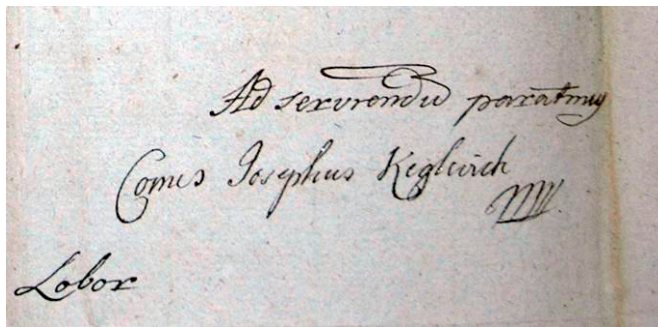 Ad serviendu paratmus
Comes Josephus Keglevich
mp
Lobor